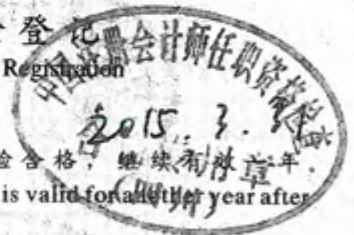 登记
Registration
中国注册会计师任职资格检查
2015.3.
合格,继续有效一年.
is valid for another year after